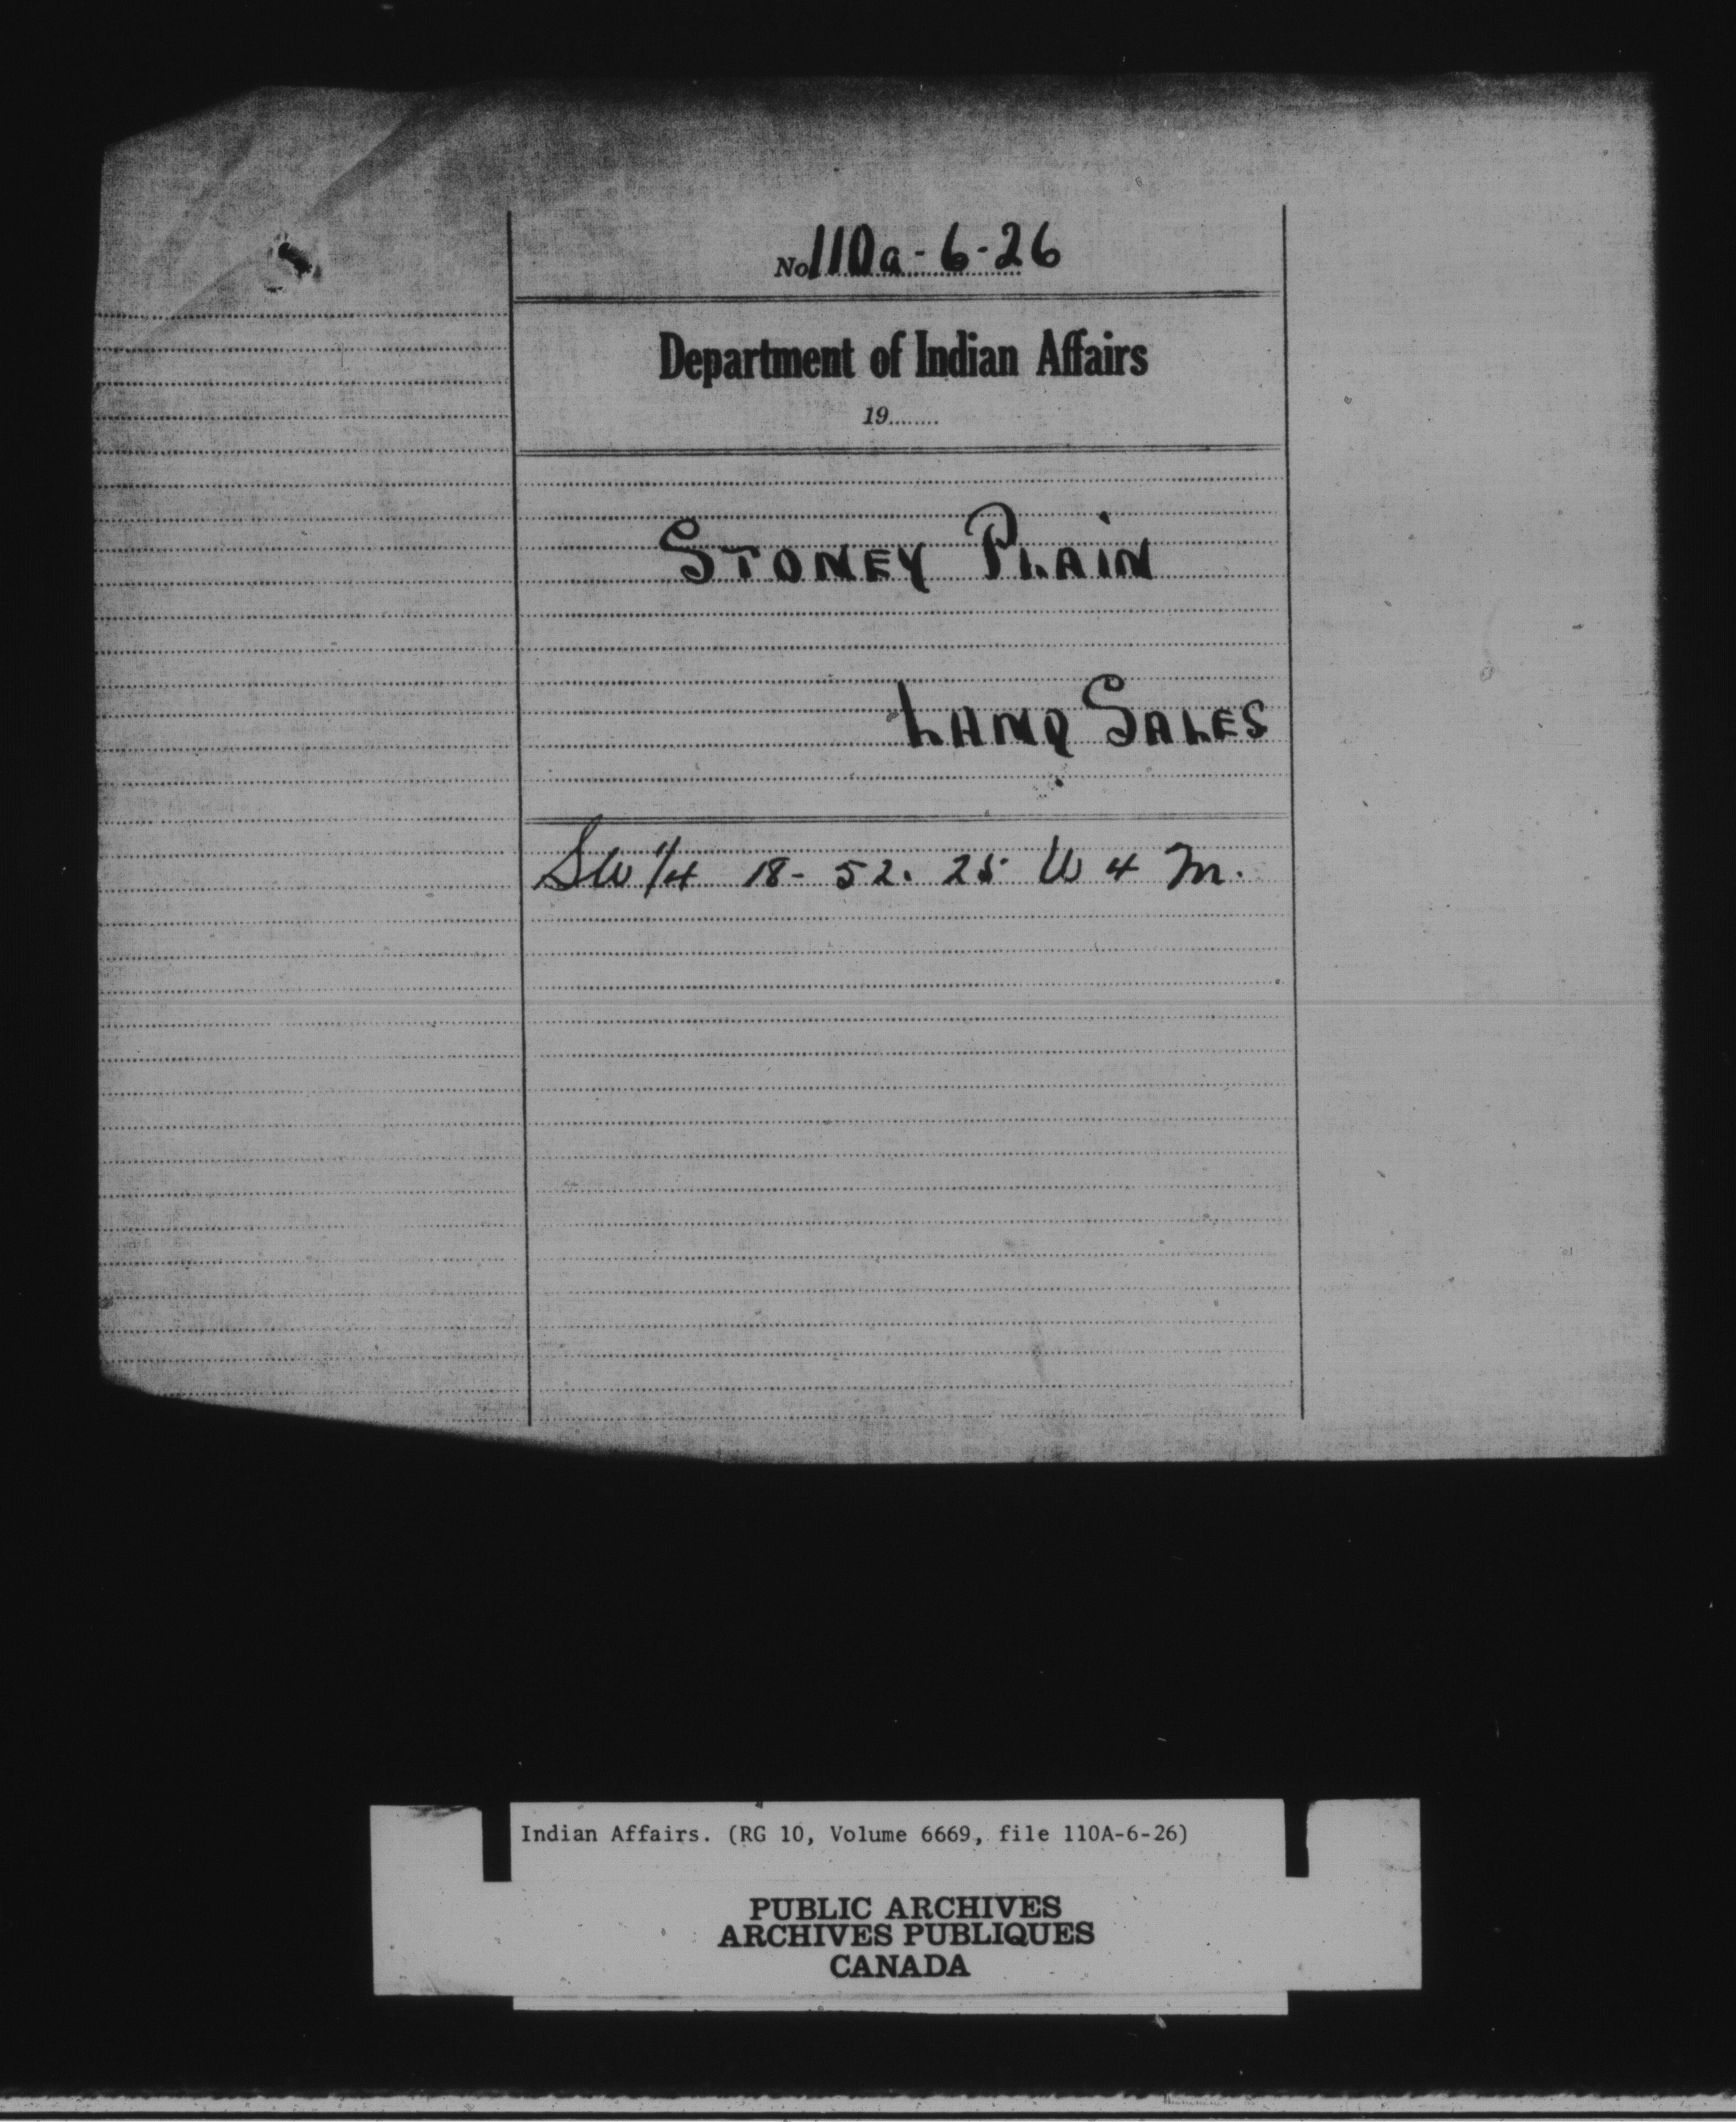 No 110a-6-26
Department of Indian Affairs
19........
STONEY PLAIN
LAND SALES
SW 1/4 18-52. 25 W 4 M.
Indian Affairs. (RG 10, Volume 6669, file 110A-6-26)
PUBLIC ARCHIVES
ARCHIVES PUBLIQUES
CANADA